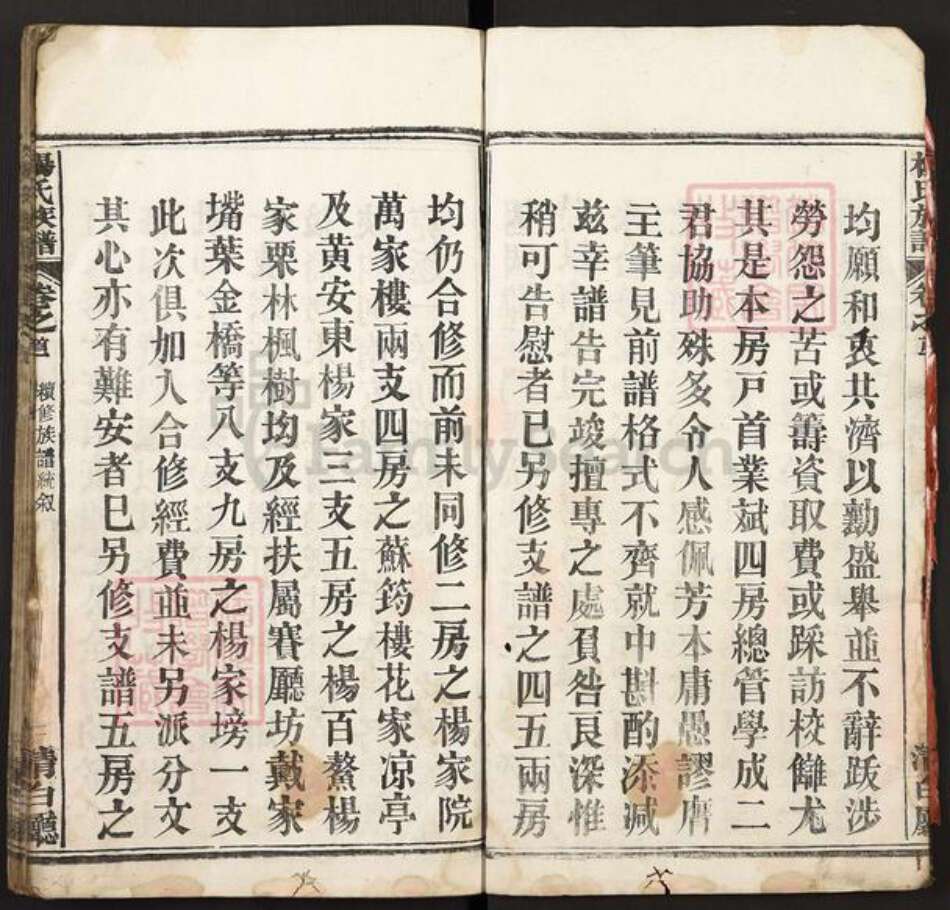 均願和衷共濟以勷盛舉並不辭跋涉
勞怨之苦或籌資取費或踩訪校讎尤
其是本房戸首業斌四房總管學成二
君協助殊多令人感佩芳本庸愚謬膺
主筆見前譜格式不齊就中斟酌添減
兹幸譜告完竣擅專之處負咎良深惟
稍可告慰者巳另修支譜之四五兩房
均仍合修而前未同修二房之楊家院
萬家樓兩支四房之蘇筠樓花家凉亭
及黄安東楊家三支五房之楊百鰲楊
家栗林楓樹均及經扶屬賽廳坊戴家
嘴葉金橋等八支九房之楊家塝一支
此次俱加入合修經費並未另派分文
其心亦有難安者巳另修支譜五房之
楊氏族譜
卷之首
續修族譜統叙
清白廳
FamilySearch